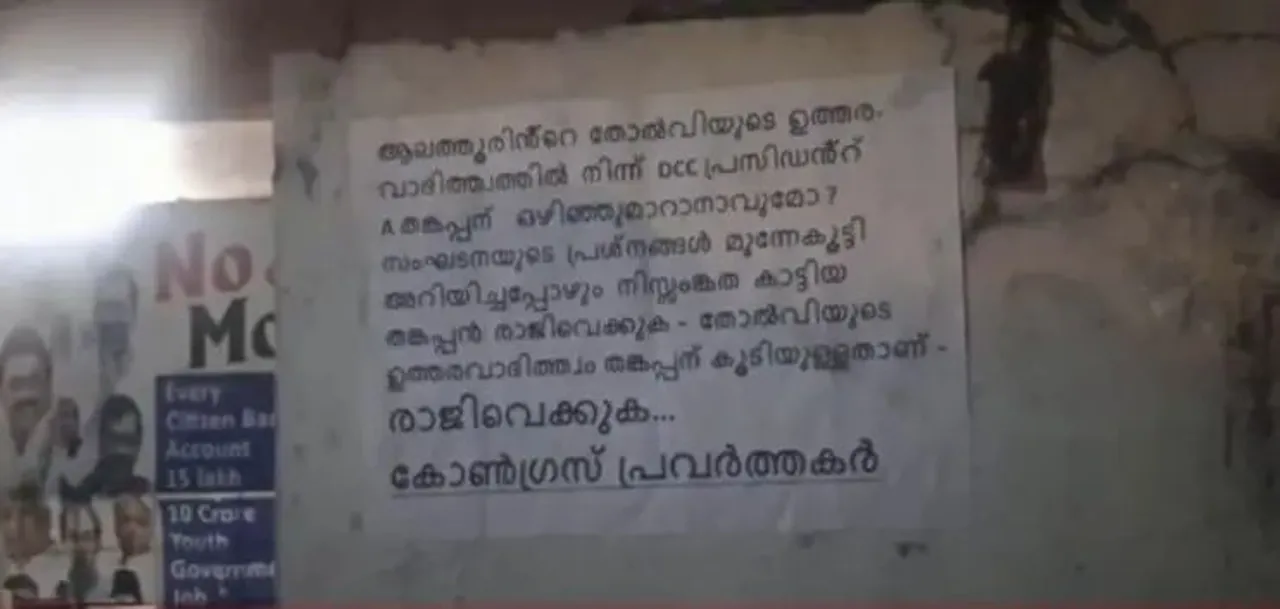 ആലത്തൂരിൻറെ തോൽവിയുടെ ഉത്തര-
വാദിത്ത്വത്തിൽ നിന്ന് DCC പ്രസിഡൻറ്
A തങ്കപ്പന് ഒഴിഞ്ഞുമാറാനാവുമോ?
സംഘടനയുടെ പ്രശ്നങ്ങൾ മുന്നേകൂട്ടി
അറിയിച്ചപ്പോഴും നിസ്സംങ്കത കാട്ടിയ
തങ്കപ്പൻ രാജിവെക്കുക - തോൽവിയുടെ
ഉത്തരവാദിത്ത്വം തങ്കപ്പന് കൂടിയുള്ളതാണ് -
രാജിവെക്കുക...
കോൺഗ്രസ് പ്രവർത്തകർ
No
Mo
Every
Citizen Ban
Account
15 lakh
10 Crore
Youth
Governme
Job